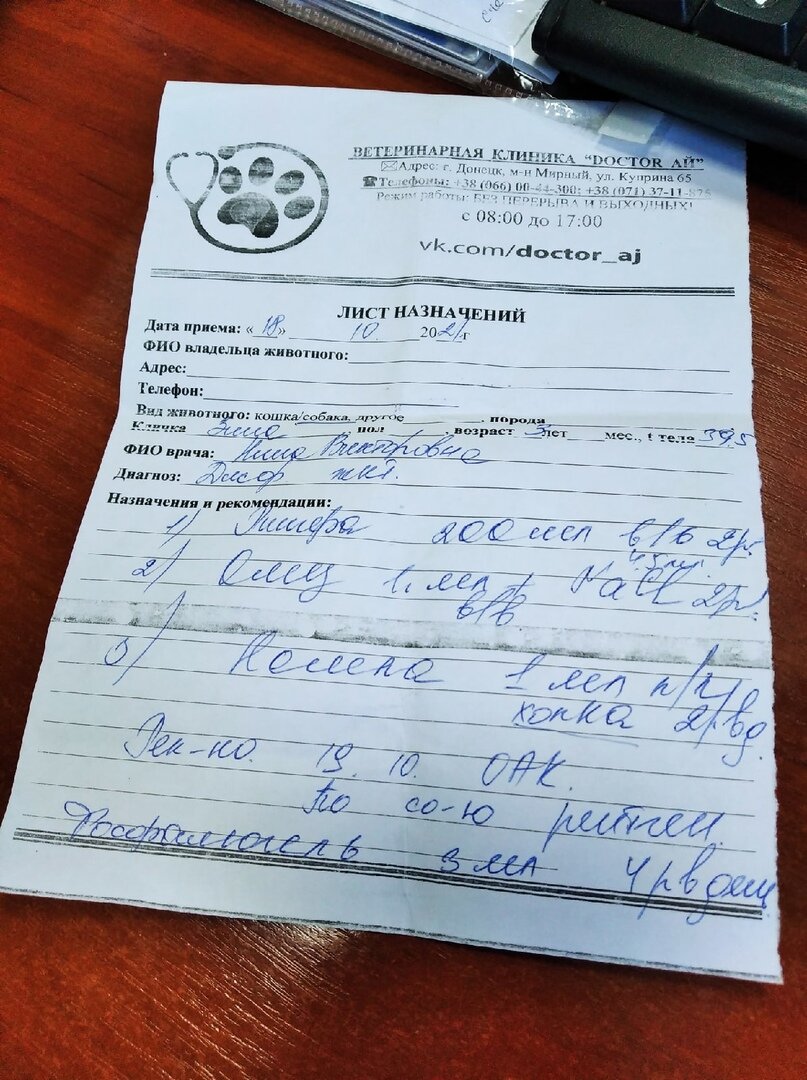 ВЕТЕРИНАРНАЯ КЛИНИКА "DOCTOR АЙ"
Адрес: г. Донецк, м-н Мирный, ул. Куприна 65
Телефоны: +38 (066) 00-44-300; +38 (071) 37-11-875
Режим работы: БЕЗ ПЕРЕРЫВА И ВЫХОДНЫХ!
с 08:00 до 17:00
vk.com/doctor_aj
ЛИСТ НАЗНАЧЕНИЙ
Дата приема: «18» 10 2021г
ФИО владельца животного:
Адрес:
Телефон:
Вид животного: кошка/собака, другое , порода
Кличка Зина , пол , возраст 3 лет мес., t тела 39,5
ФИО врача: Нина Викторовна
Диагноз: ЖКТ.
Назначения и рекомендации:
1) 200 мл в/в 2р.
2) Омез 1, мл + NaCl 2р.
в/в
3) 1 мл п/к
холка 2р в д.
Рек-но 19. 10. ОАК.
По со-ю рентген
Фосфалюгель 3 мл 4 р в день